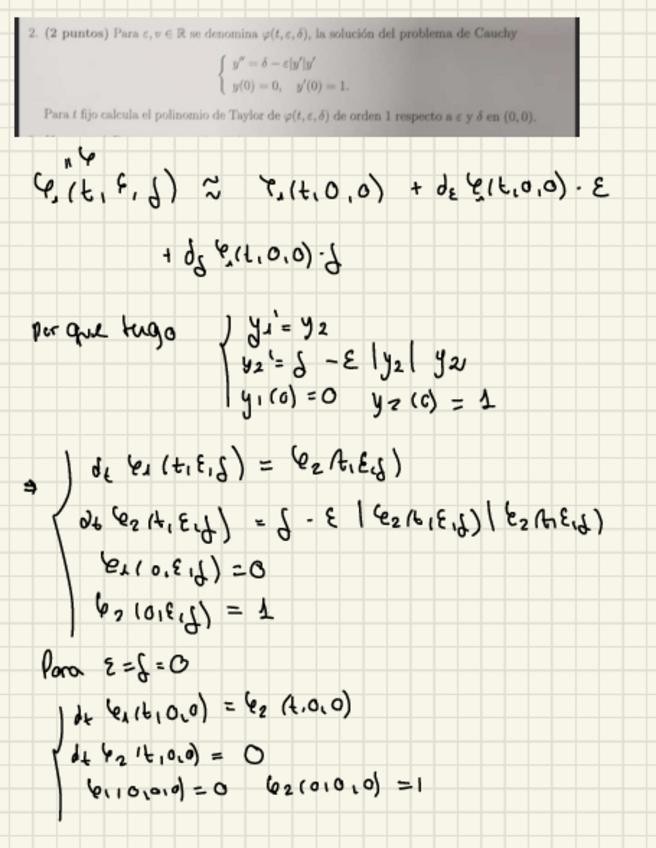 2. (2 puntos) Para ε, v ∈ ℝ se denomina φ(t, ε, δ), la solución del problema de Cauchy
{ y'' = δ − ε|y'|y'
y(0) = 0, y'(0) = 1.
Para t fijo calcula el polinomio de Taylor de φ(t, ε, δ) de orden 1 respecto a ε y δ en (0, 0).
" φ
φ₁(t, ε, δ) ≈ φ₁(t, 0, 0) + d_ε φ₁(t, 0, 0) · ε
+ d_δ φ₁(t, 0, 0) · δ
Por que tengo { y₁' = y₂
y₂' = δ − ε |y₂| y₂
y₁(0) = 0 y₂(0) = 1
⇒ { d_t φ₁(t, ε, δ) = φ₂(t, ε, δ)
d_t φ₂(t, ε, δ) = δ − ε |φ₂(t, ε, δ)| φ₂(t, ε, δ)
φ₁(0, ε, δ) = 0
φ₂(0, ε, δ) = 1
Para ε = δ = 0
{ d_t φ₁(t, 0, 0) = φ₂(t, 0, 0)
d_t φ₂(t, 0, 0) = 0
φ₁(0, 0, 0) = 0 φ₂(0, 0, 0) = 1